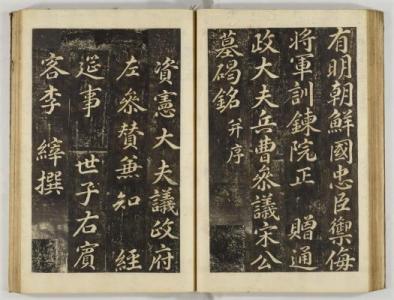 有明朝鮮國忠臣禦侮
將軍訓鍊院正 贈通
政大夫兵曹參議宋公
墓碣銘 并序
資憲大夫議政府
左參贊兼 知 經
筵事 世子右賓
客李 縡撰